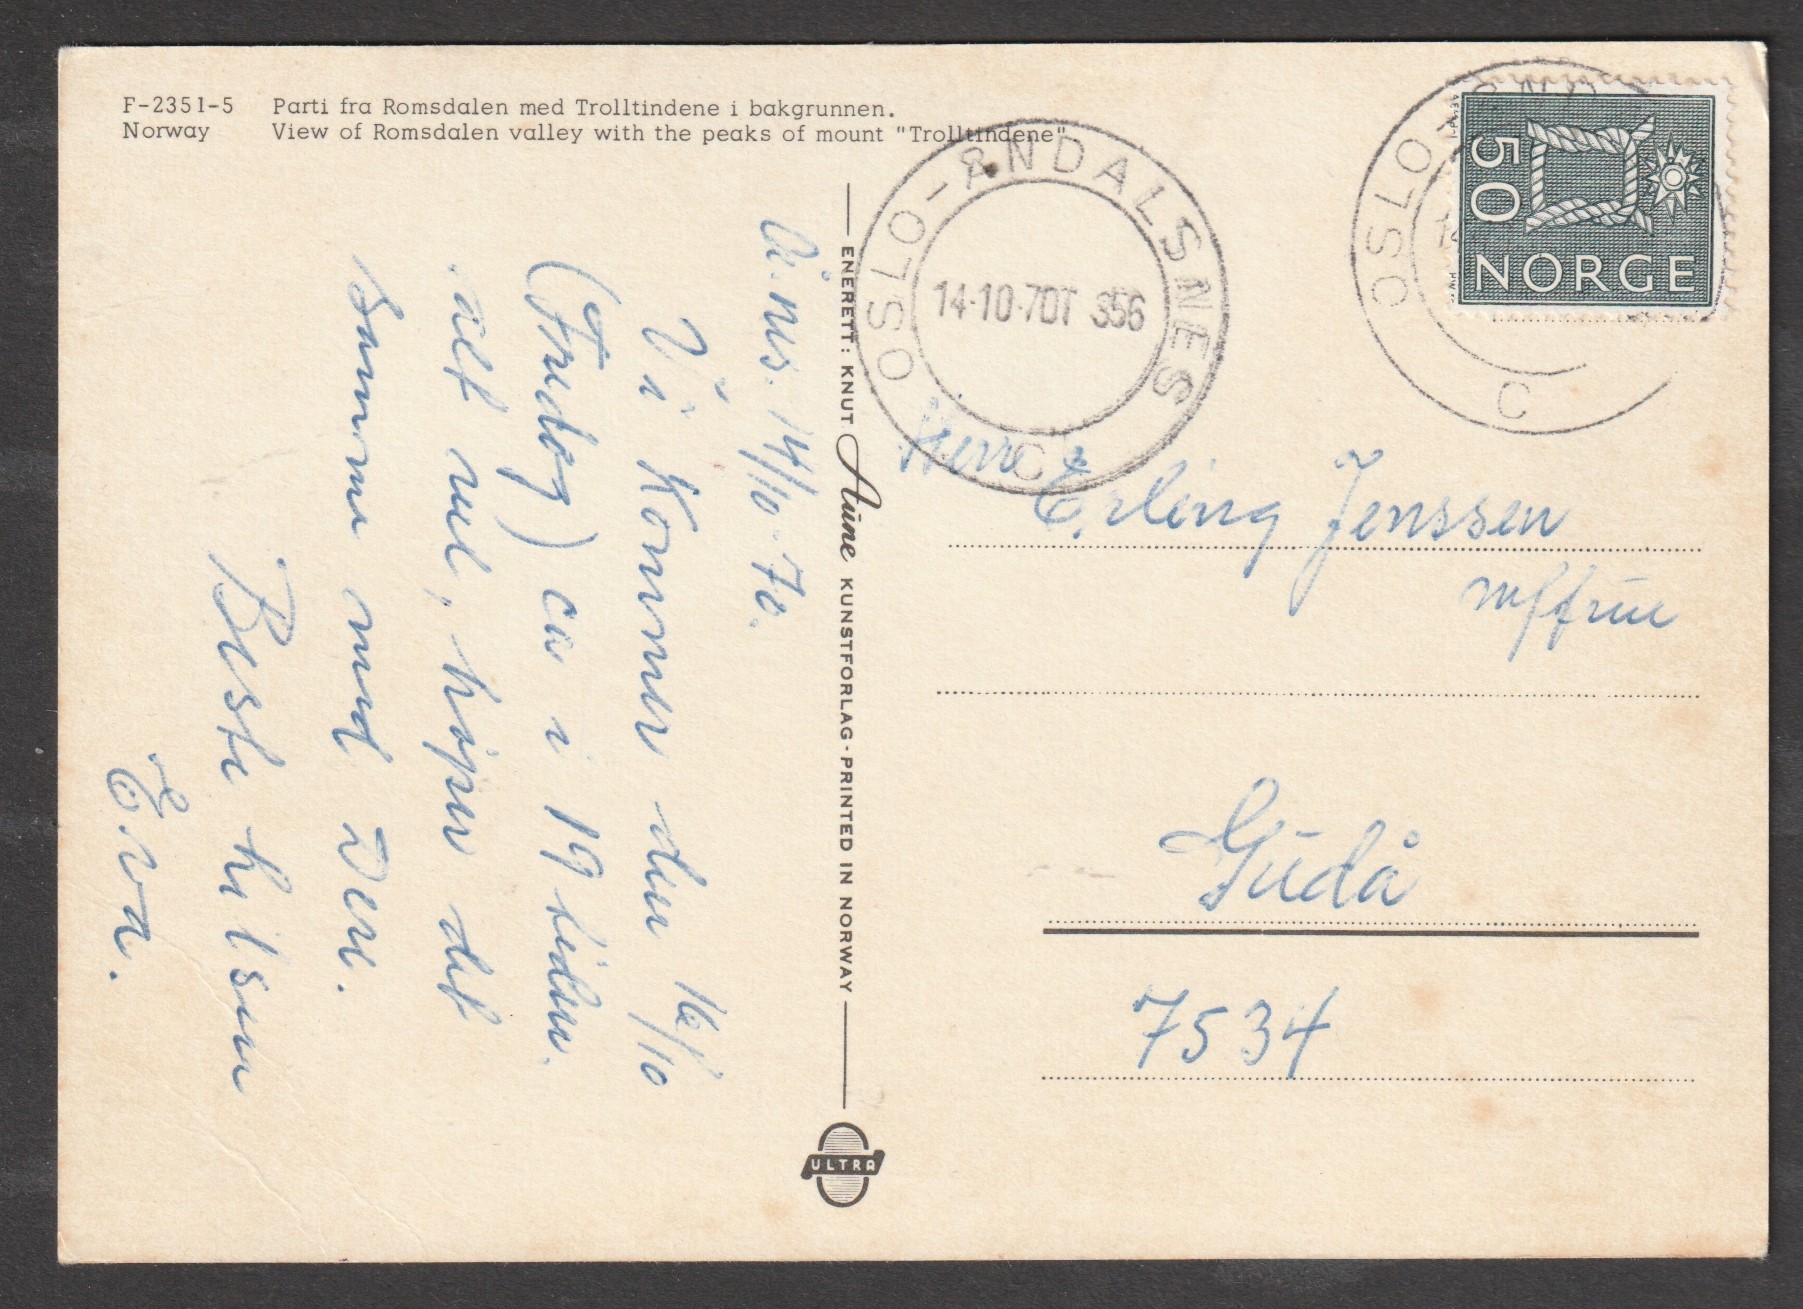 F-2351-5 Parti fra Romsdalen med Trolltindene i bakgrunnen.
Norway View of Romsdalen valley with the peaks of mount "Trolltindene"
Å.nes. 14/10-70.
Vi kommer den 16/10
(Fredag) ca i 19 tiden.
alt vel, håper det
samme med Dere.
Beste hilsen
Eva.
ENERETT: KNUT Aune KUNSTFORLAG - PRINTED IN NORWAY
ULTRA
OSLO-ÅNDALSNES
14-10-70T 356
C
OSLO
C
50
NORGE
Herr
Erling Jenssen
m/frue
Gudå
7534